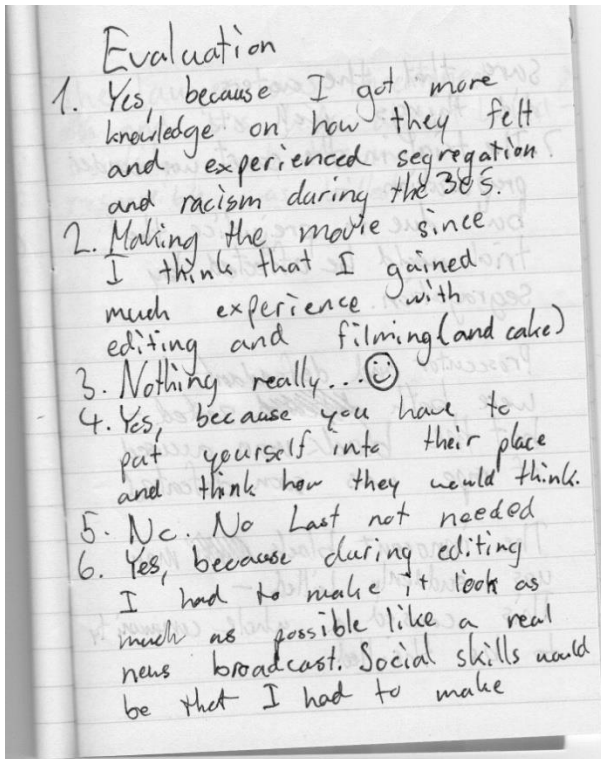 Evaluation
1. Yes, because I got more
knowledge on how they felt
and experienced segregation
and racism during the 30s.
2. Making the movie since
I think that I gained
much experience with
editing and filming (and cake)
3. Nothing really... ☺
4. Yes, because you have to
put yourself into their place
and think how they would think.
5. No. No Last not needed
6. Yes, because during editing
I had to make it look as
much as possible like a real
news broadcast. Social skills would
be that I had to make